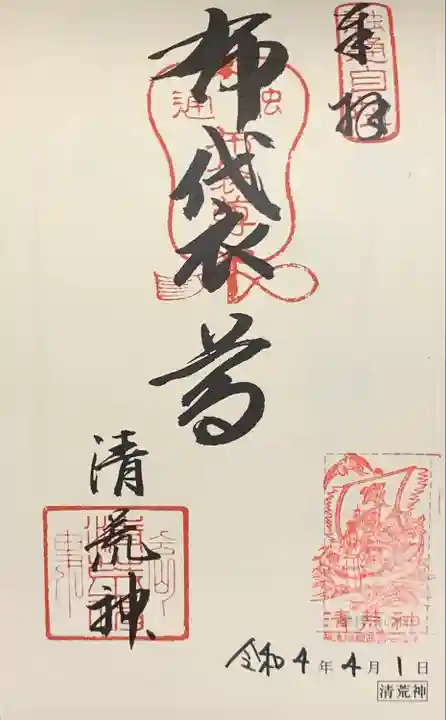 奉拝
布袋尊
清荒神
清荒神
令和4年4月1日
清荒神